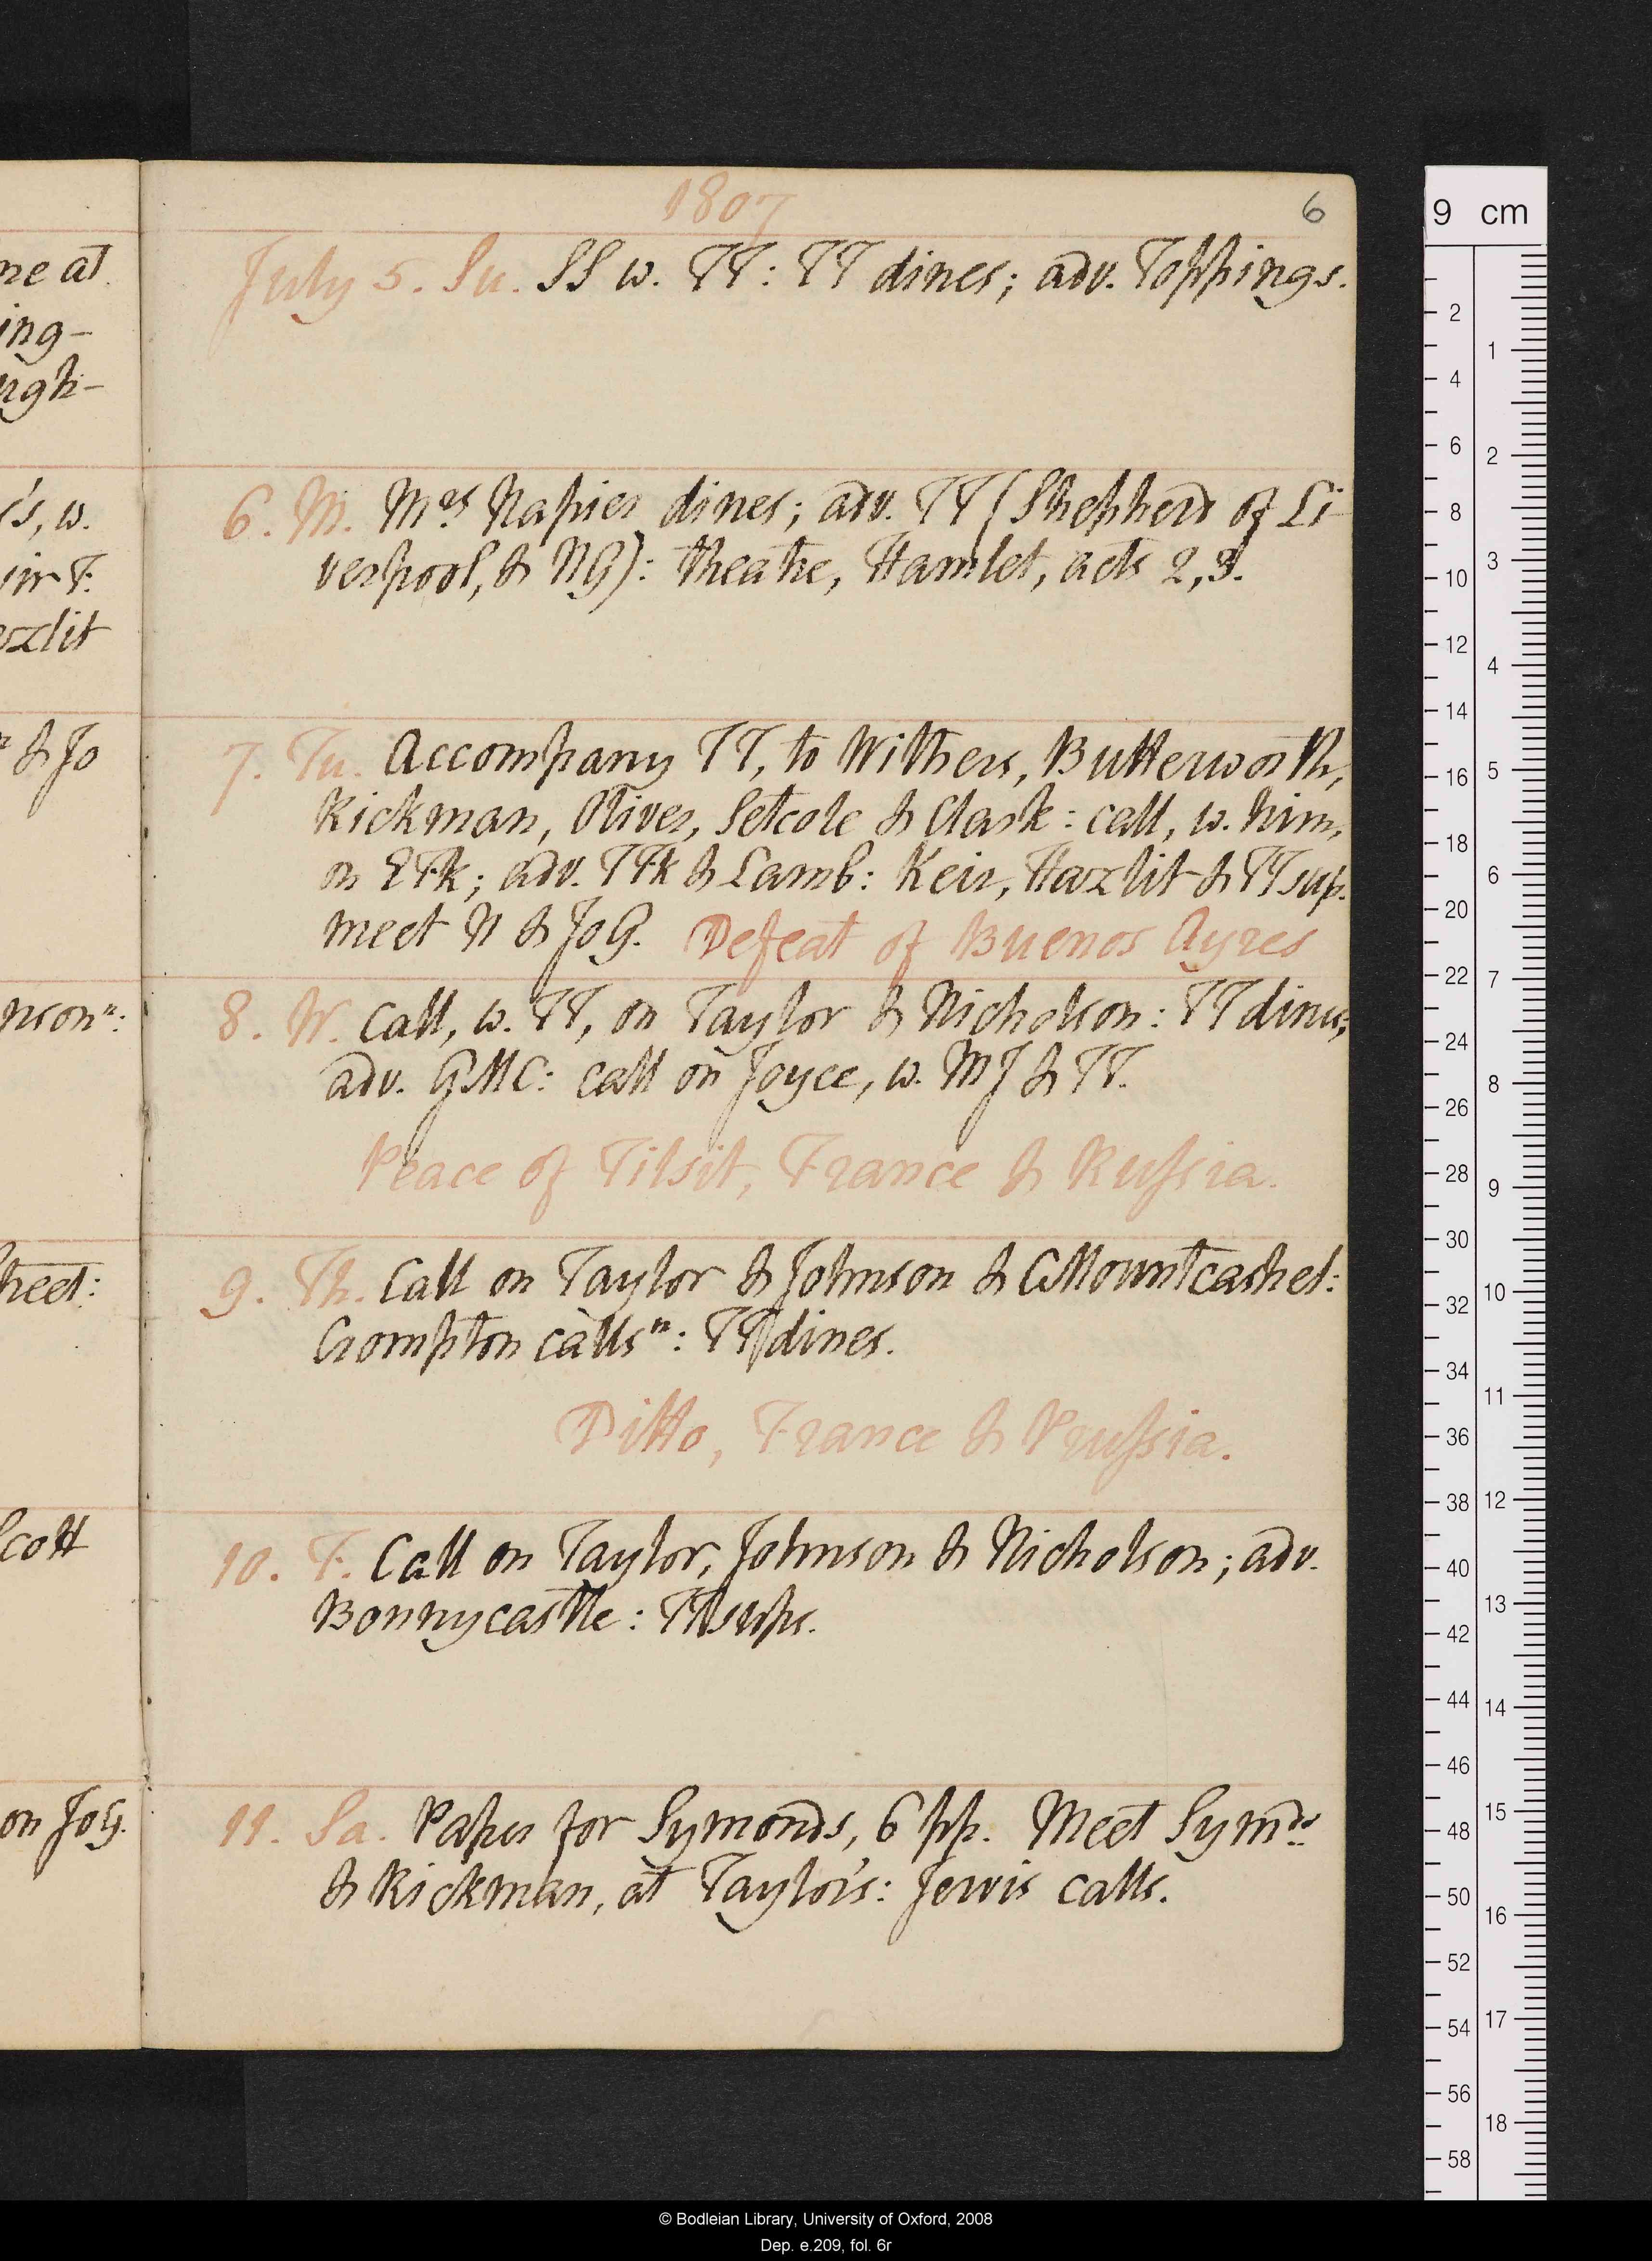 1807
6
July 5. Su. SS w. TT: TT dines; adv. Toppings.
6. M. Mrs Napier dines; adv. TT (Shepherd of Li-
verpool, & NG): theatre, Hamlet, acts 2, 3.
7. Tu. Accompany TT, to Withers, Butterworth,
Rickman, Oliver, Setcole & Clark: call, w. him,
on ETk; adv. TTk & Lamb: Keir, Hazlit & TT sup.
meet N & JoG. Defeat of Buenos Ayres
8. W. Call, w. TT, on Taylor & Nicholson: TT dines;
adv. GMC: call on Joyce, w. MJ & TT.
Peace of Tilsit, France & Russia.
9. Th. Call on Taylor & Johnson & CMountcashel:
Crompton calls n: TT dines.
Ditto, France & Prussia.
10. F. Call on Taylor, Johnson & Nicholson; adv.
Bonnycastle: TT sups.
11. Sa. Paper for Symonds, 6 pp. Meet Symds
& Rickman, at Taylor's: Jervis calls.
ne at
ing-
ugh-
r's, w.
ir F.
azlit
n & Jo
nson n:
treet:
Scott
on JoG.
9 cm
2
4
6
8
10
12
14
16
18
20
22
24
26
28
30
32
34
36
38
40
42
44
46
48
50
52
54
56
58
1
2
3
4
5
6
7
8
9
10
11
12
13
14
15
16
17
18
© Bodleian Library, University of Oxford, 2008
Dep. e.209, fol. 6r